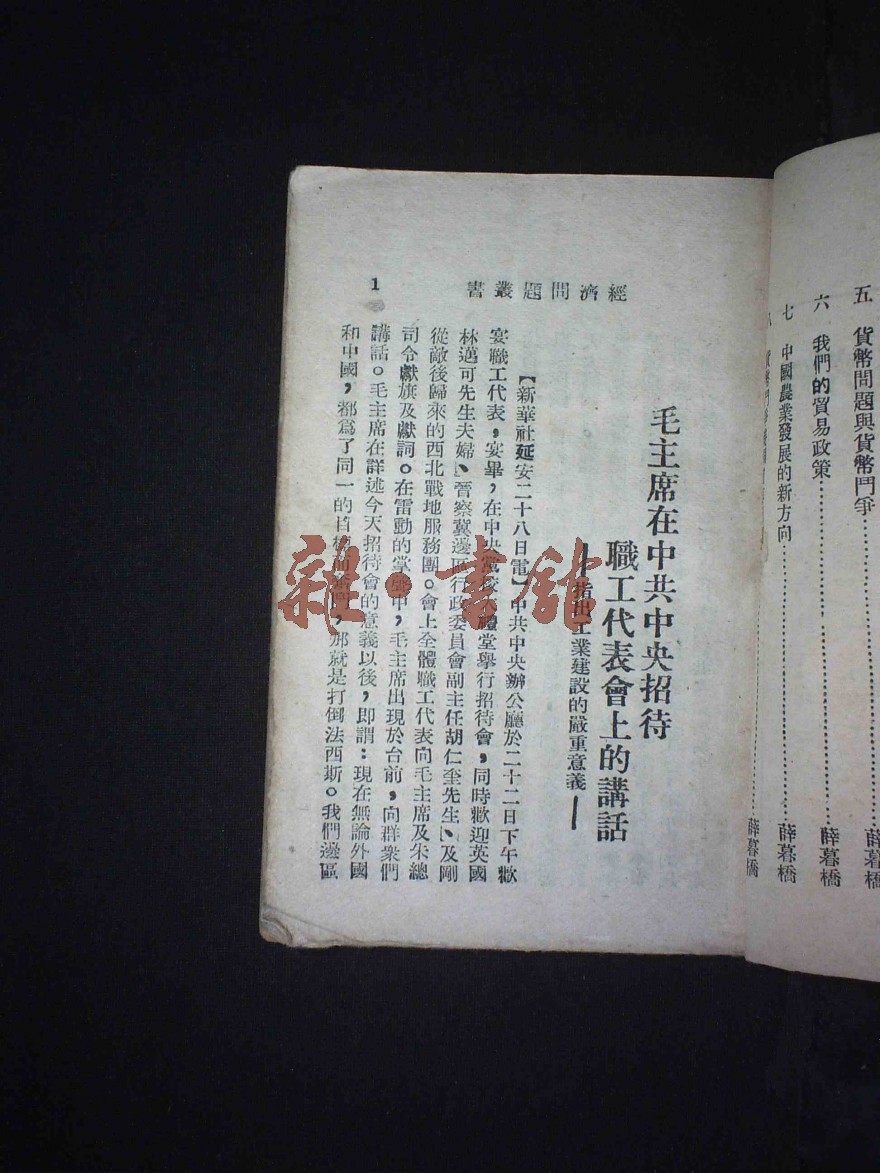 五 貨幣問題與貨幣鬥爭……薛暮橋
六 我們的貿易政策……薛暮橋
七 中國農業發展的新方向……薛暮橋
薛暮橋
經濟問題叢書
1
毛主席在中共中央招待
職工代表會上的講話
——指出工業建設的嚴重意義——
【新華社延安二十八日電】中共中央辦公廳於二十二日下午歡
宴職工代表,宴畢,在中央黨校大禮堂舉行招待會,同時歡迎英國
林邁可先生夫婦、晉察冀邊區行政委員會副主任胡仁奎先生、及剛
從敵後歸來的西北戰地服務團。會上全體職工代表向毛主席及朱總
司令獻旗及獻詞。在雷動的掌聲中,毛主席出現於台前,向群衆們
講話。毛主席在詳述今天招待會的意義以後,即謂:現在無論外國
和中國,都爲了同一的目標而奮鬥,那就是打倒法西斯。我們邊區
雜·書館